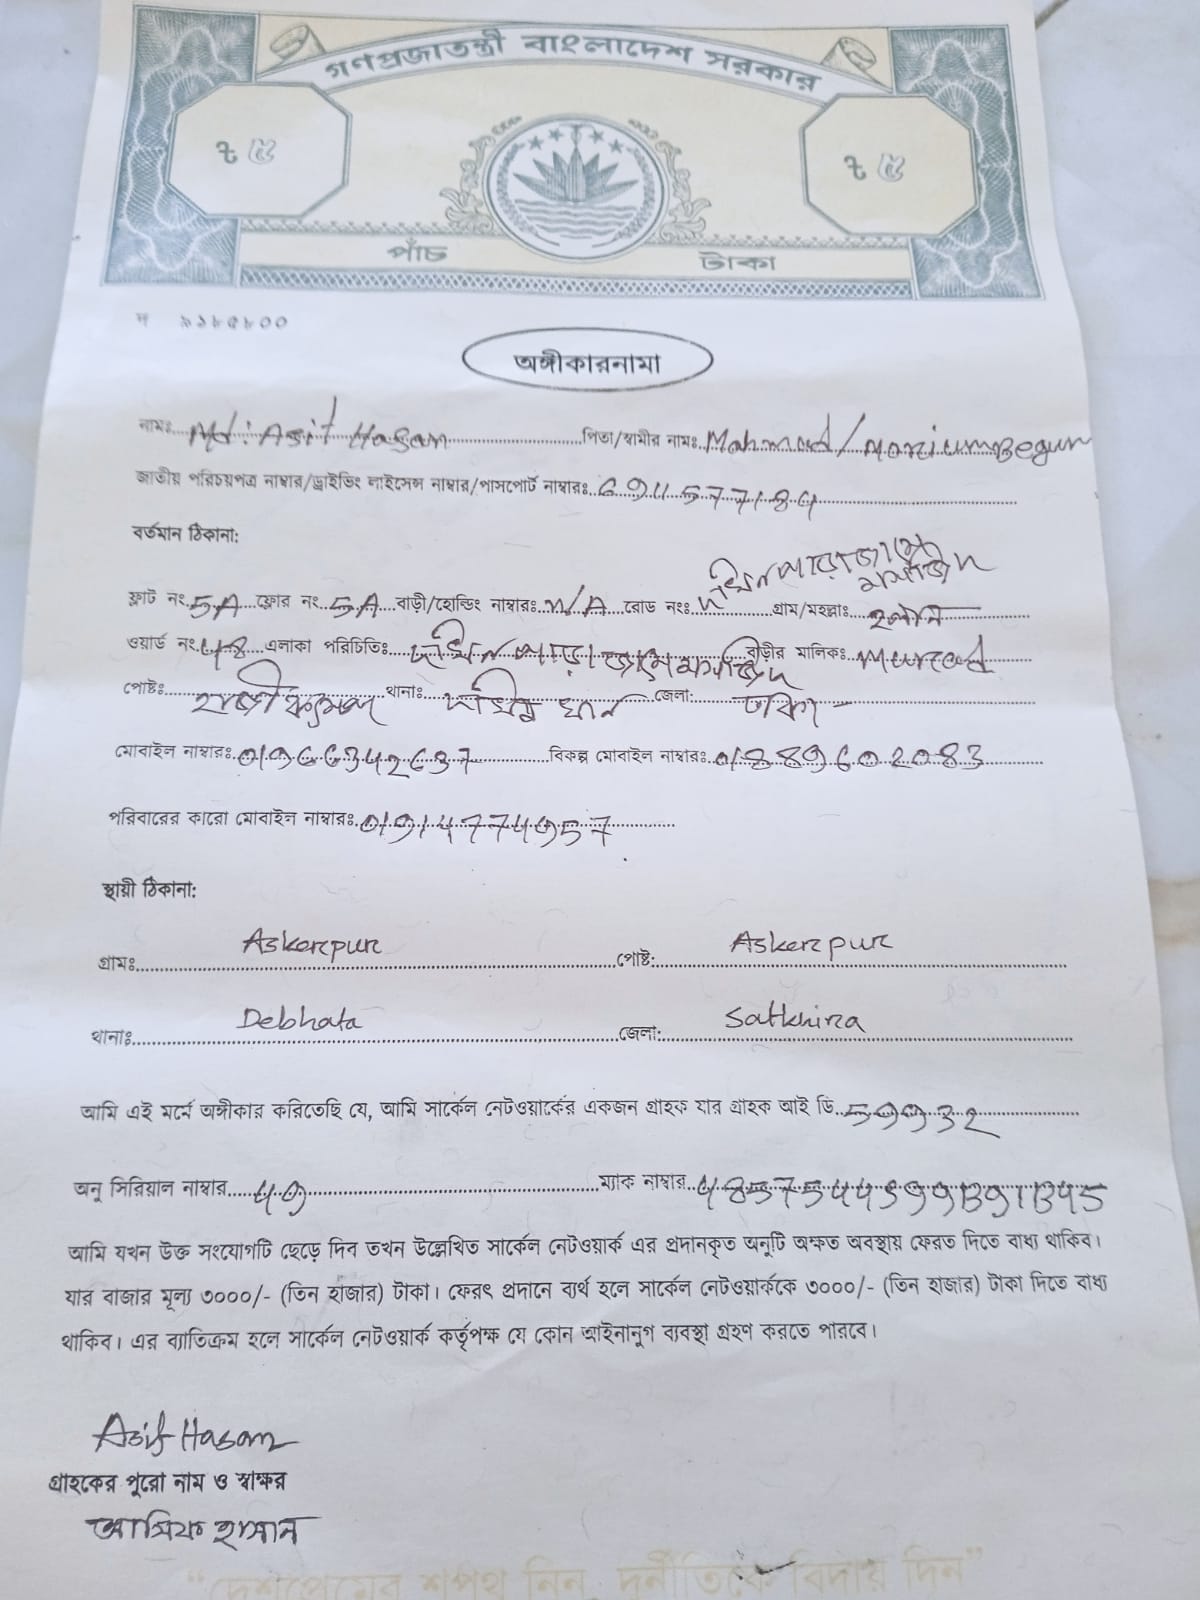 গণপ্রজাতন্ত্রী বাংলাদেশ সরকার
৳ ৫ ৳ ৫
পাঁচ টাকা
অঙ্গীকারনামা
নামঃ Md: Asif Hasan পিতা/স্বামীর নামঃ Mahmud/ Begum
জাতীয় পরিচয়পত্র নাম্বার/ড্রাইভিং লাইসেন্স নাম্বার/পাসপোর্ট নাম্বারঃ
বর্তমান ঠিকানা:
ফ্লাট নং 5A ফ্লোর নং 5A বাড়ী/হোল্ডিং নাম্বারঃ N/A রোড নংঃ গ্রাম/মহল্লাঃ
ওয়ার্ড নং 48 এলাকা পরিচিতিঃ বাড়ীর মালিকঃ
পোষ্টঃ থানাঃ জেলা: ঢাকা
মোবাইল নাম্বারঃ বিকল্প মোবাইল নাম্বারঃ 01889602083
পরিবারের কারো মোবাইল নাম্বারঃ
স্থায়ী ঠিকানা:
গ্রামঃ Askerpur পোষ্ট: Askerpur
থানাঃ Debhata জেলা: Satkhira
আমি এই মর্মে অঙ্গীকার করিতেছি যে, আমি সার্কেল নেটওয়ার্কের একজন গ্রাহক যার গ্রাহক আই ডি
অনু সিরিয়াল নাম্বার ম্যাক নাম্বার
আমি যখন উক্ত সংযোগটি ছেড়ে দিব তখন উল্লেখিত সার্কেল নেটওয়ার্ক এর প্রদানকৃত অনুটি অক্ষত অবস্থায় ফেরত দিতে বাধ্য থাকিব।
যার বাজার মূল্য ৩০০০/- (তিন হাজার) টাকা। ফেরৎ প্রদানে ব্যর্থ হলে সার্কেল নেটওয়ার্ককে ৩০০০/- (তিন হাজার) টাকা দিতে বাধ্য
থাকিব। এর ব্যাতিক্রম হলে সার্কেল নেটওয়ার্ক কর্তৃপক্ষ যে কোন আইনানুগ ব্যবস্থা গ্রহণ করতে পারবে।
Asif Hasan
গ্রাহকের পুরো নাম ও স্বাক্ষর
আসিফ হাসান
“দেশপ্রেমের শপথ নিন, দুর্নীতিকে বিদায় দিন”